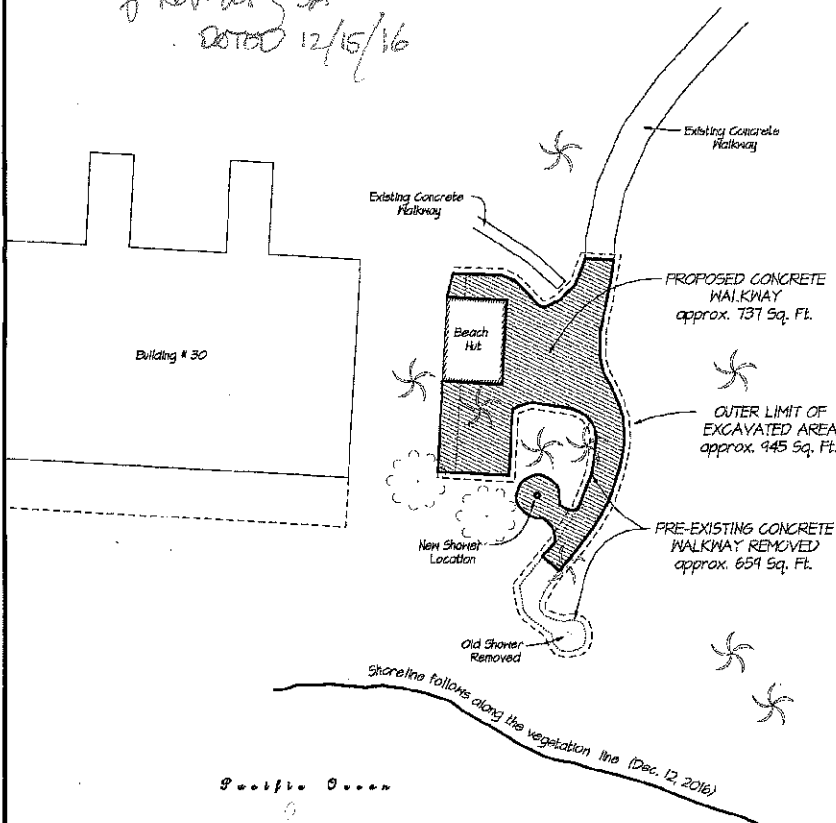 DATED 12/15/16
Existing Concrete
Walkway
Existing Concrete
Walkway
PROPOSED CONCRETE
WALKWAY
approx. 737 Sq. Ft.
Beach
Hut
Building # 30
OUTER LIMIT OF
EXCAVATED AREA
approx. 945 Sq. Ft.
PRE-EXISTING CONCRETE
WALKWAY REMOVED
approx. 659 Sq. Ft.
New Shower
Location
Old Shower
Removed
Shoreline follows along the vegetation line (Dec. 12, 2016)
Pacific Ocean